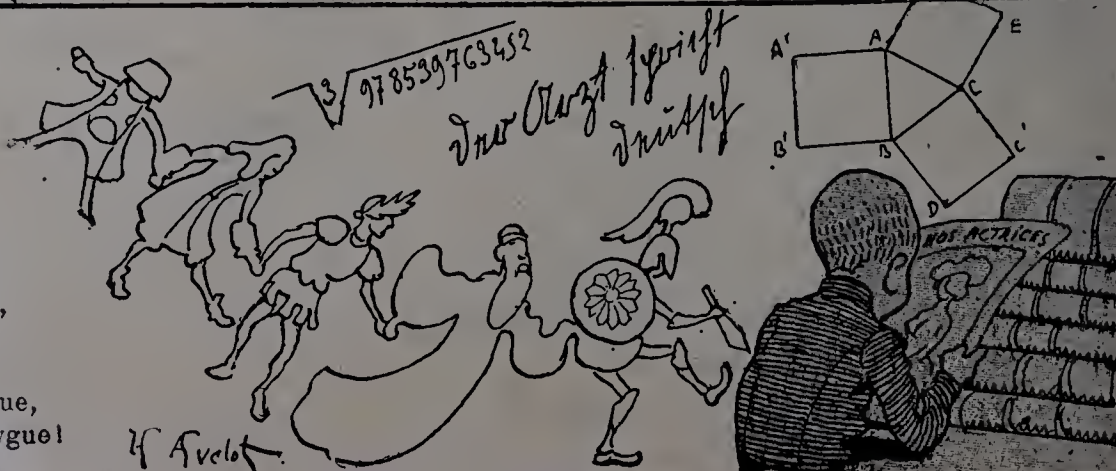 3 978539763452
Der Arzt spricht
deutsch
A'
A
E
C
B'
B
C'
D
NOS ACTRICES
ue,
H Avelot